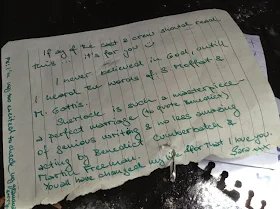 If any of the cast & crew should read
this it's for you
I never believed in God, untill
I heard the words of S. Moffat &
M. Gatiss.
Sherlock is such a masterpiece -
a perfect marriage (to quote Benedict)
of genious writing & no less amazing
acting by Benedict Cumberbatch &
Martin Freeman.
You all have changed my life. After that I love you